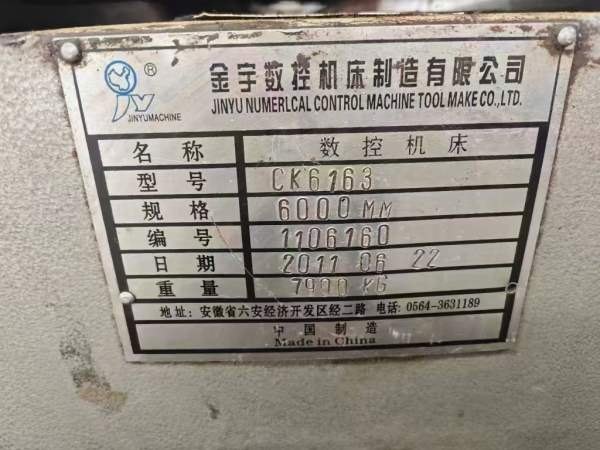 JY
®
JINYUMACHINE
金宇数控机床制造有限公司
JINYU NUMERLCAL CONTROL MACHINE TOOL MAKE CO.,LTD.
名称 数控机床
型号 CK6163
规格 6000 MM
编号 1106160
日期 2011 06 22
重量 7900 KG
地址: 安徽省六安经济开发区经二路 电话: 0564-3631189
中国制造
Made in China